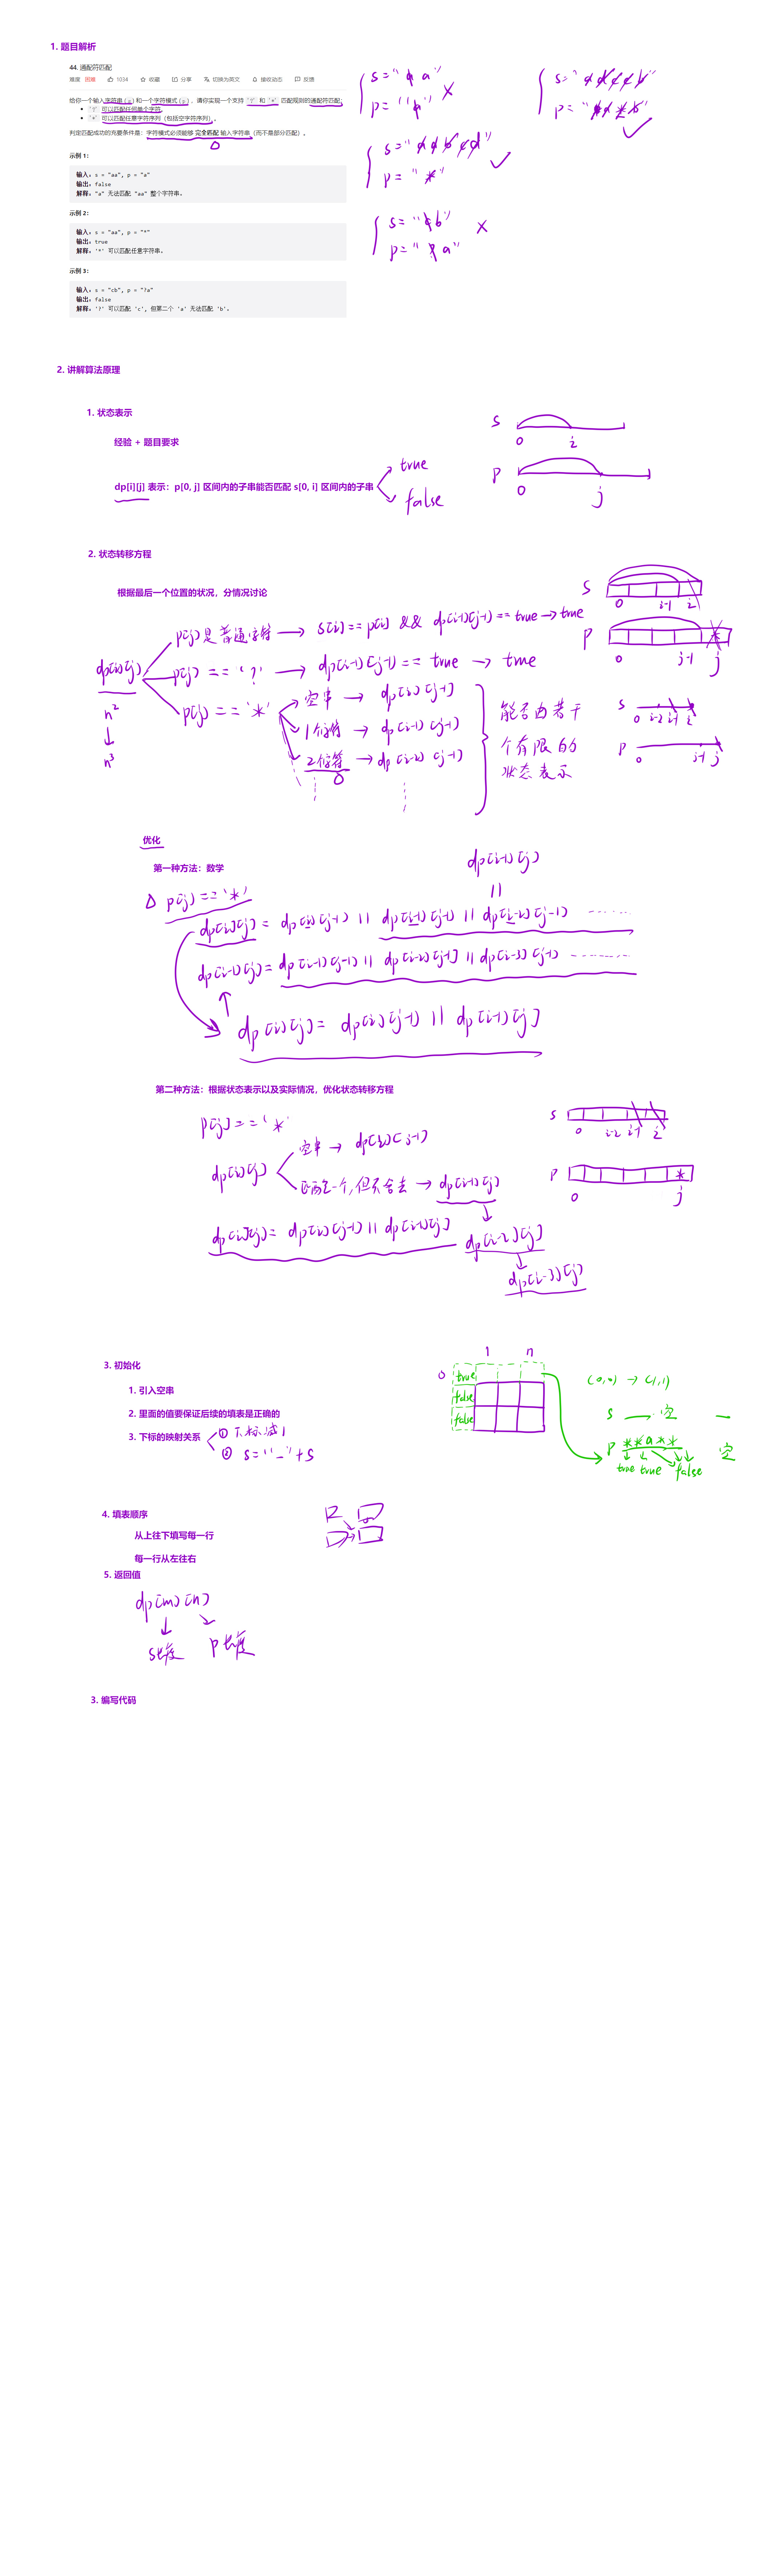 1. 题目解析
44. 通配符匹配
难度 困难 1034 收藏 分享 切换为英文 接收动态 反馈
给你一个输入字符串 (s) 和一个字符模式 (p) ，请你实现一个支持 '?' 和 '*' 匹配规则的通配符匹配：
• '?' 可以匹配任何单个字符。
• '*' 可以匹配任意字符序列（包括空字符序列）。
判定匹配成功的充要条件是：字符模式必须能够 完全匹配 输入字符串（而不是部分匹配）。
示例 1：
输入：s = "aa", p = "a"
输出：false
解释："a" 无法匹配 "aa" 整个字符串。
示例 2：
输入：s = "aa", p = "*"
输出：true
解释：'*' 可以匹配任意字符串。
示例 3：
输入：s = "cb", p = "?a"
输出：false
解释：'?' 可以匹配 'c', 但第二个 'a' 无法匹配 'b'。
s = "a a"
p = "a"
s = "
p = "
s = "
p = "*"
s = "c b"
p = "? a"
2. 讲解算法原理
1. 状态表示
经验 + 题目要求
dp[i][j] 表示：p[0, j] 区间内的子串能否匹配 s[0, i] 区间内的子串
true
false
s
0 i
p
0 j
2. 状态转移方程
根据最后一个位置的状况，分情况讨论
dp[i][j]
n²
↓
n³
p[j]是普通字符 → s[i] == p[j] && dp[i-1][j-1] == true → true
p[j] == '?' → dp[i-1][j-1] == true → true
p[j] == '*'
空串 → dp[i][j-1]
1个字符 → dp[i-1][j-1]
2个字符 → dp[i-2][j-1]
能否由若干
个有限的
状态表示
s
0 i-1 i
p *
0 j-1 j
s
0 i-2 i-1 i
p
0 j-1 j
优化
第一种方法：数学
dp[i-1][j]
||
△ p[j] == '*'
dp[i][j] = dp[i][j-1] || dp[i-1][j-1] || dp[i-2][j-1] ......
dp[i-1][j] = dp[i-1][j-1] || dp[i-2][j-1] || dp[i-3][j-1] ......
dp[i][j] = dp[i][j-1] || dp[i-1][j]
第二种方法：根据状态表示以及实际情况，优化状态转移方程
p[j] == '*'
dp[i][j]
空串 → dp[i][j-1]
匹配一个,但不舍去 → dp[i-1][j]
dp[i][j] = dp[i][j-1] || dp[i-1][j]
dp[i-2][j]
dp[i-3][j]
s
0 i-2 i-1 i
p *
0 j
3. 初始化
1. 引入空串
2. 里面的值要保证后续的填表是正确的
3. 下标的映射关系
① 下标减1
② s = "_" + s
1 n
0 true
false
false
(0,0) → (1,1)
s → 空 —
p **a** 空
true true false
4. 填表顺序
从上往下填写每一行
每一行从左往右
5. 返回值
dp[m][n]
s长度 p长度
3. 编写代码